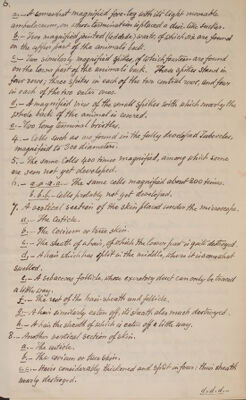 6.
a. - A somewhat magnified fore-leg with its large movable
ambulacrum, on whose termination is placed a disc-like sucker.
b. - Two magnified jointed warts, of which six are found
on the upper part of the animal's back.
c. - Two similarly magnified spikes, of which fourteen are found
on the lower part of the animal's back. These spikes stand in
four rows; three spikes in each of the two central rows, and four
in each of the two outer ones.
d. - A magnified view of the small spikes with which nearly the
whole back of the animal is covered.
e. - Two long terminal bristles.
4. - Cells such as are found in the fully developed tubercles,
magnified to 300 diameters.
5. - The same cells 400 times magnified, among which some
are seen not yet developed.
6. - a.a.a.a. - The same cells magnified about 800 times.
b.b.b. - Cells probably not yet developed.
7. A vertical section of the skin placed under the microscope.
a. - The cuticle.
b. - The corium or true skin.
c. - The sheath of a hair, of which the lower part is quite destroyed.
d. - A hair which has split in the middle, where it is somewhat
swelled.
e. - A sebaceous follicle, whose excretory duct can only be traced
a little way.
f. - The rest of the hair-sheath and follicle.
g. - A hair similarly eaten off, its sheath also much destroyed.
h. - A hair the sheath of which is eaten off a little way.
8. - Another vertical section of skin.
a. - The cuticle.
b. - The corium or true skin.
c.c. - Hairs considerably thickened and split in four; their sheath
nearly destroyed.
d.d.d. -